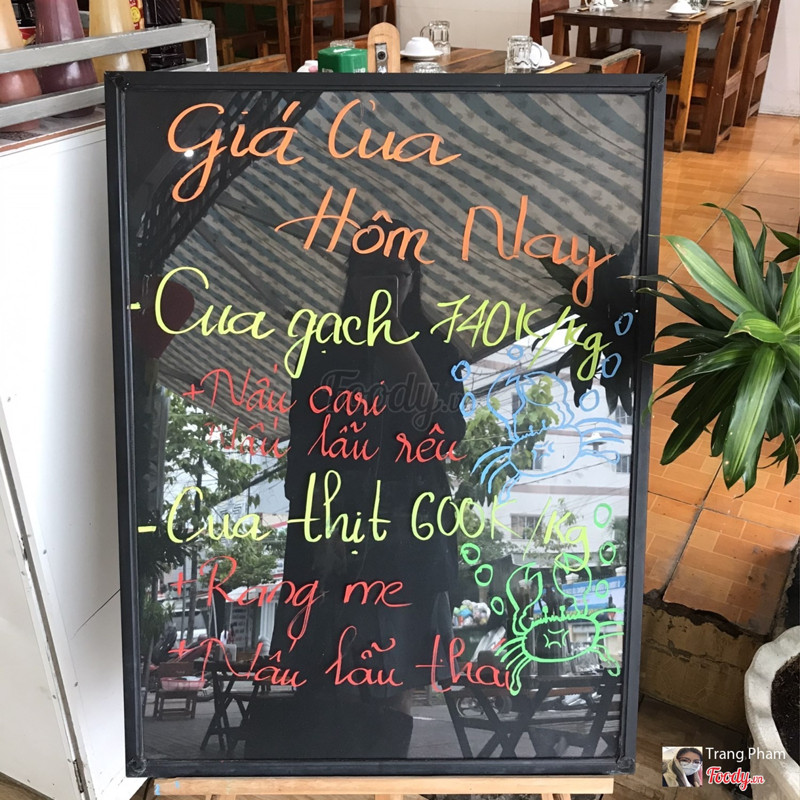 Giá Cua
Hôm Nay
- Cua gạch 740K/kg
+ Nấu cari
Nấu lẫu rêu
- Cua thịt 600K/kg
+ Rang me
+ Nấu lẫu thái
Foody.vn
Trang Pham
Foody.vn